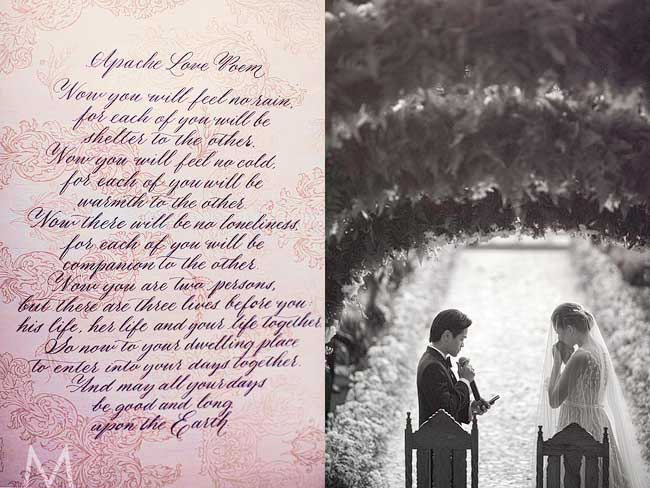 Apache Love Poem
Now you will feel no rain,
for each of you will be
shelter to the other.
Now you will feel no cold,
for each of you will be
warmth to the other.
Now there will be no loneliness,
for each of you will be
companion to the other.
Now you are two persons,
but there are three lives before you:
his life, her life and your life together.
So now to your dwelling place
to enter into your days together.
And may all your days
be good and long
upon the Earth.
M